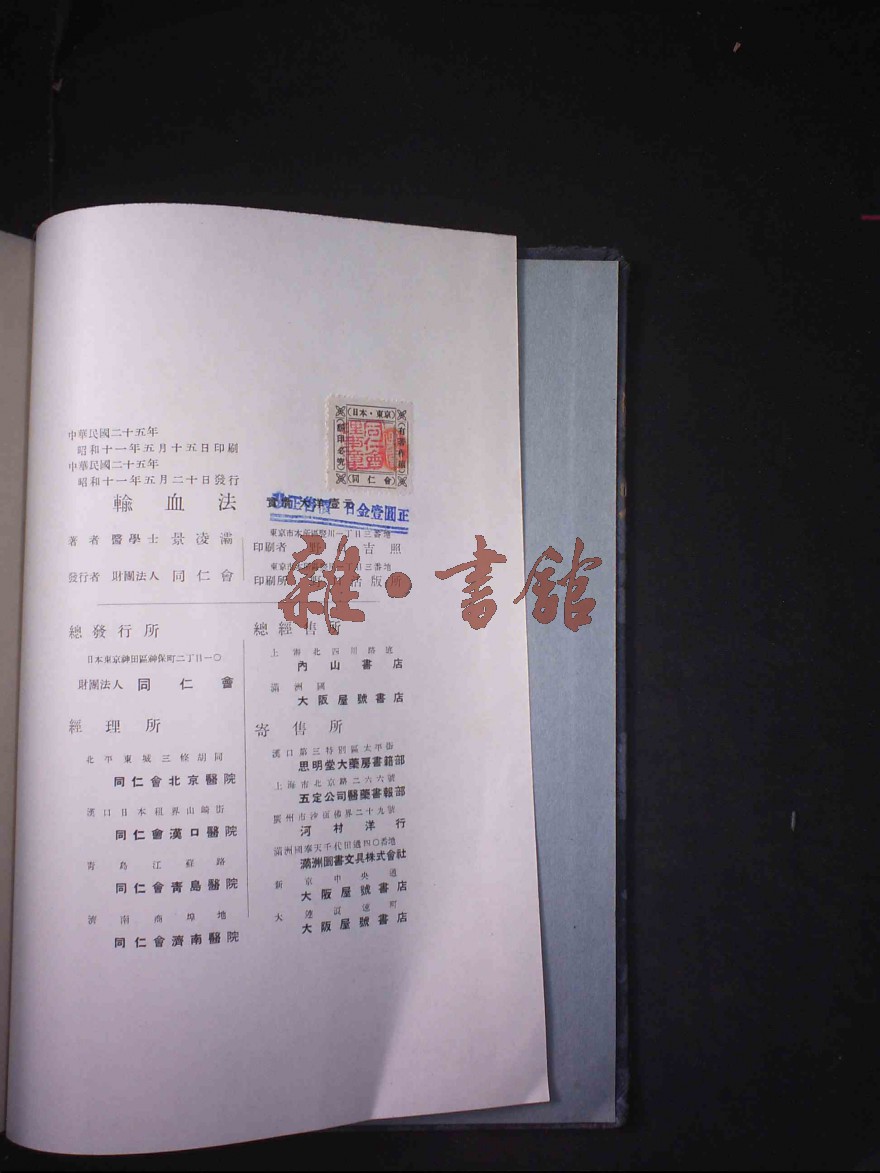 中華民國二十五年
昭和十一年五月十五日印刷
中華民國二十五年
昭和十一年五月二十日發行
輸血法
著者 醫學士 景凌灞
發行者 財團法人 同仁會
日本・東京
有著作權
翻印必究
同仁會
大洋壹元
金壹圓正
東京市本所區竪川一丁目三番地
印刷者
吉照
東京市
一丁目三番地
印刷所
活版所
雜・書館
總發行所
日本東京神田區神保町二丁目一〇
財團法人 同仁會
經理所
北平東城三條胡同
同仁會北京醫院
漢口日本租界山崎街
同仁會漢口醫院
青島江蘇路
同仁會青島醫院
濟南商埠地
同仁會濟南醫院
總經售所
上海北四川路底
內山書店
滿洲國
大阪屋號書店
寄售所
漢口第三特別區太平街
思明堂大藥房書籍部
上海市北京路二六六號
五定公司醫藥書報部
廣州市沙面佛界二十九號
河村洋行
滿洲國奉天千代田通四〇番地
滿洲圖書文具株式會社
新京中央通
大阪屋號書店
大連浪速町
大阪屋號書店